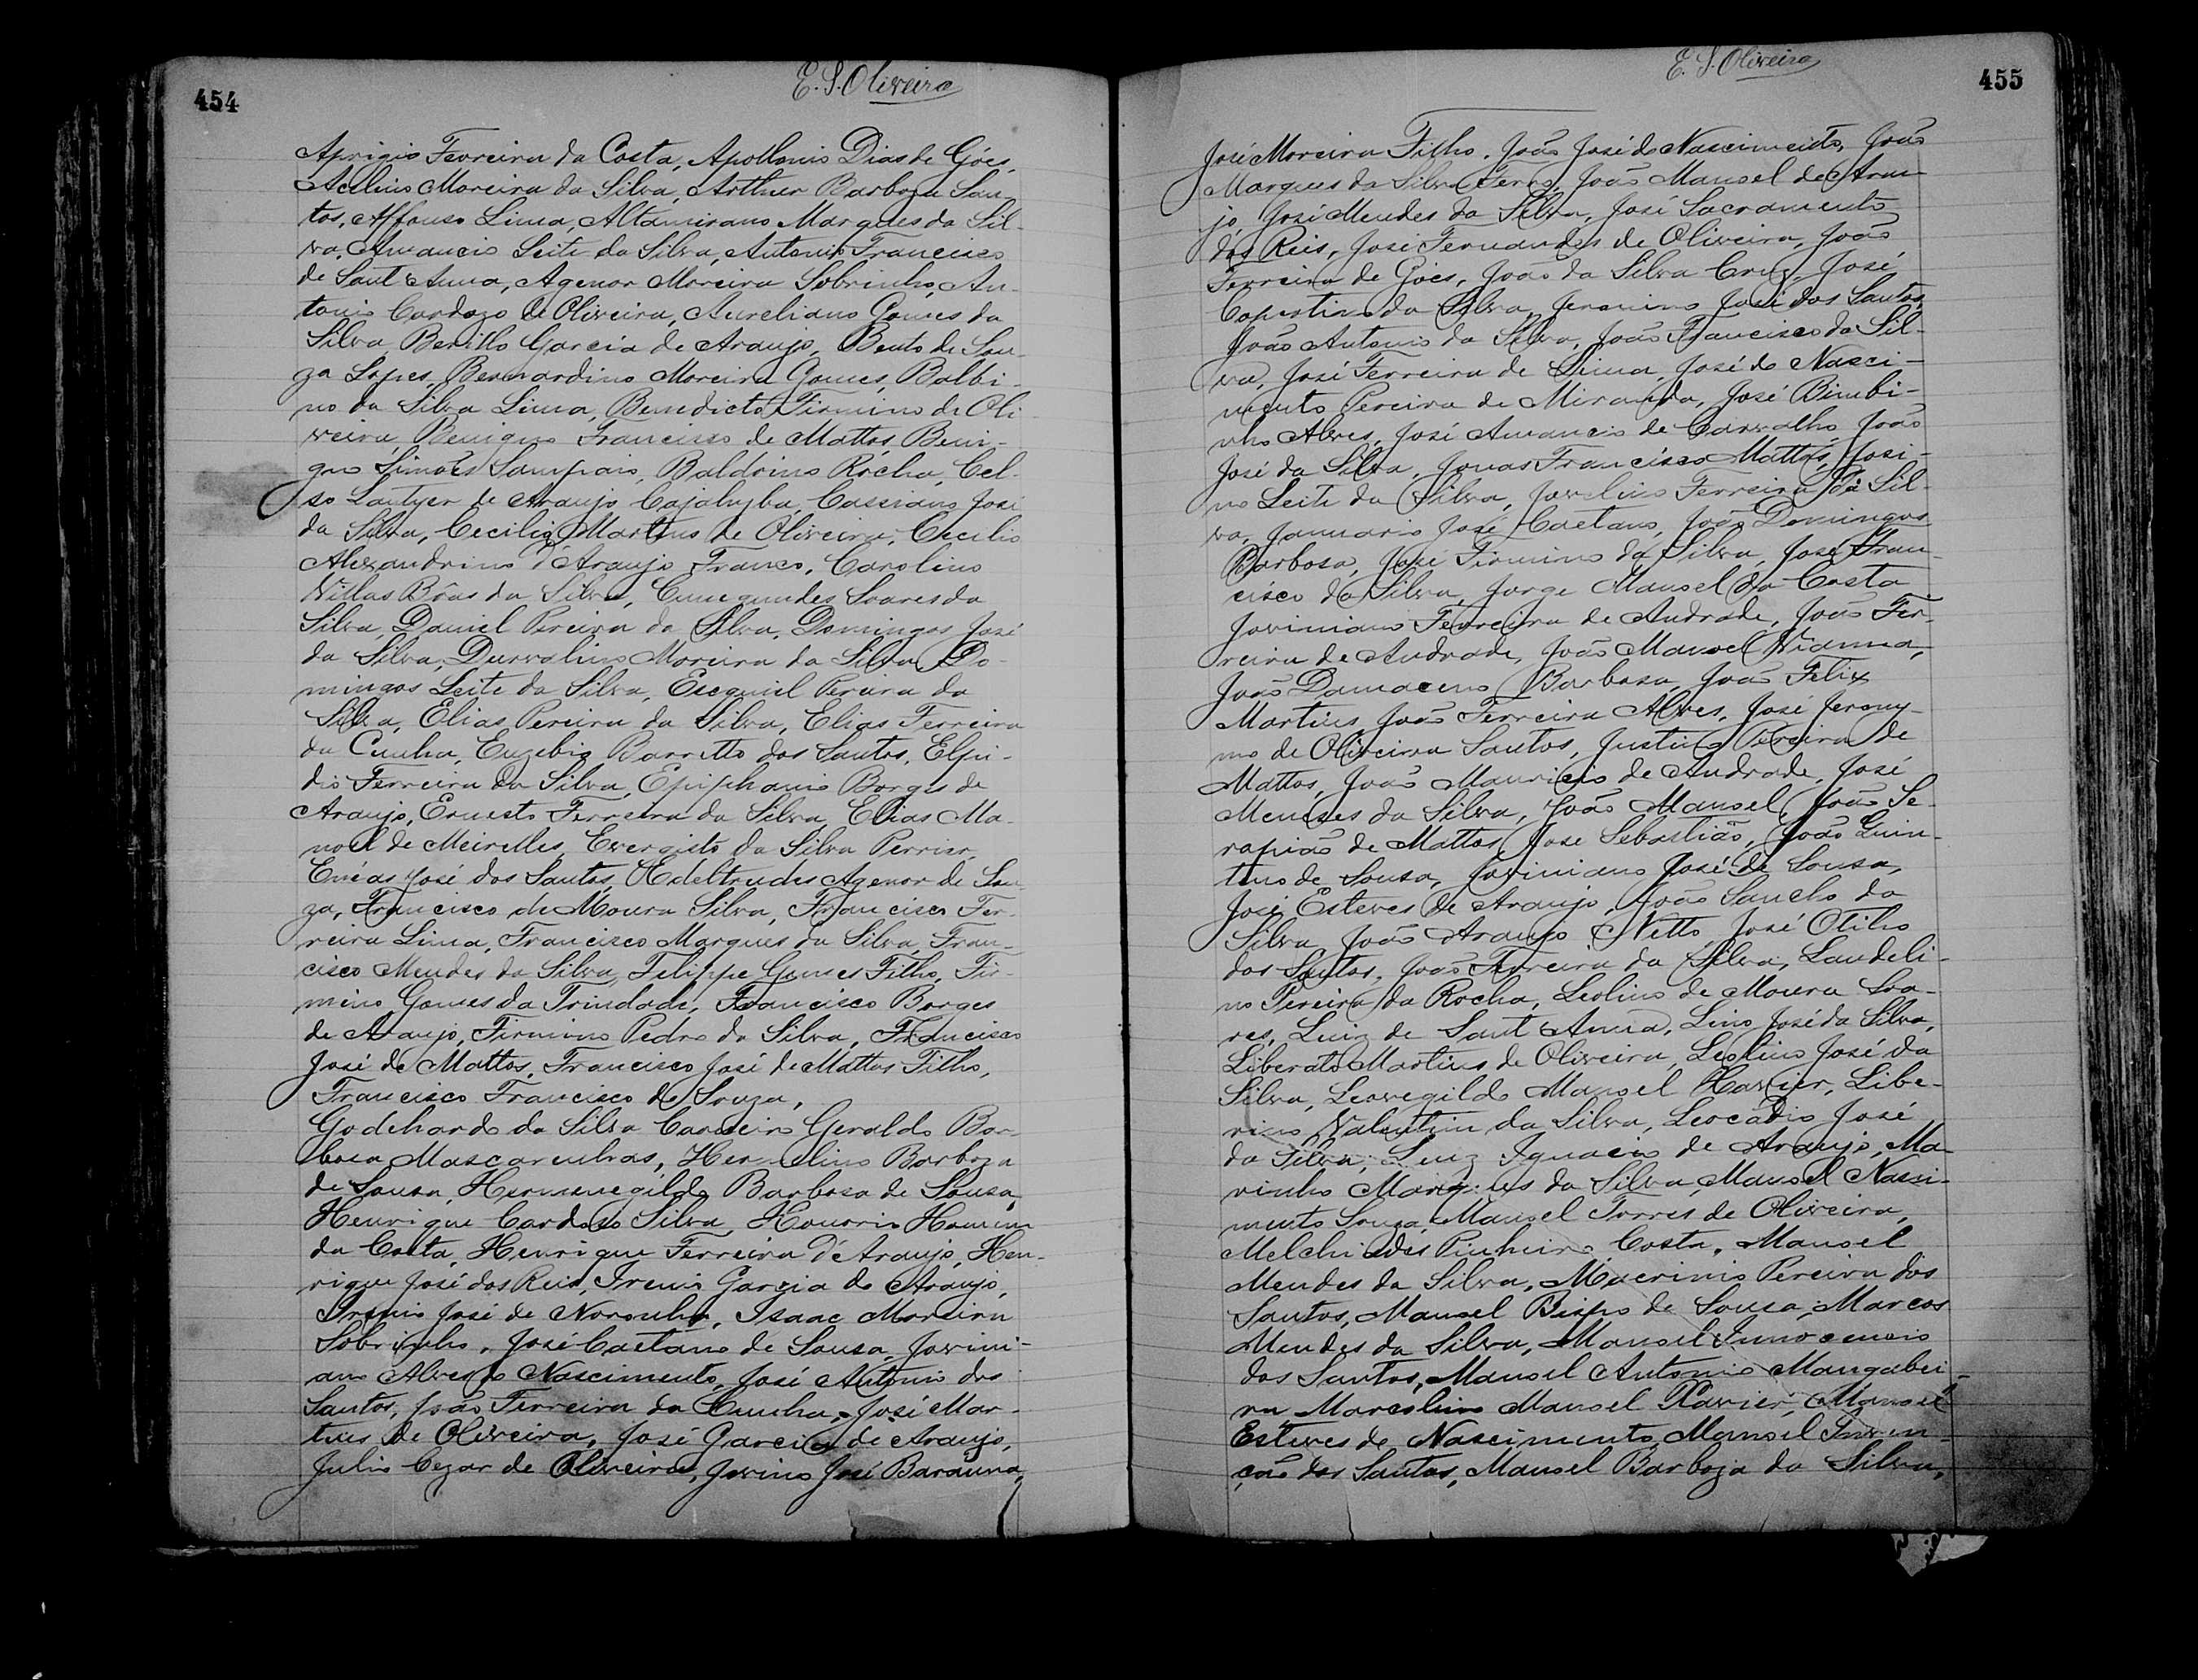 454
E. S. Oliveira
Aprigio Ferreira da Costa, Apollonio Dias de Góes,
Acelino Moreira da Silva, Arthur Barboza San-
tos, Affonso Lima, Altamirano Marques da Sil-
va, Amancio Leite da Silva, Antonio Francisco
de Sant'Anna, Agenor Moreira Sobrinho, An-
tonio Cardozo de Oliveira, Aureliano Gomes da
Silva, Berillo Garcia de Araujo, Bento de Sou-
za Lopes, Bernardino Moreira Gomes, Balbi-
no da Silva Lima, Benedicto Firmino de Oli-
veira, Benigno Francisco de Mattos, Beni-
gno Simões Sampaio, Baldoino Rocha, Cel-
so Lautyer de Araujo Cajahyba, Cassiano José
da Silva, Cecilio Martins de Oliveira, Cecilio
Alexandrino d'Araujo Franco, Carolino
Villas Bôas da Silva, Cunegundes Soares da
Silva, Daniel Pereira da Silva, Domingos José
da Silva, Durvalino Moreira da Silva, Do-
mingos Leite da Silva, Esequiel Pereira da
Silva, Elias Pereira da Silva, Elias Ferreira
da Cunha, Euzebio Barretto dos Santos, Elpi-
dio Ferreira da Silva, Epiphanio Borges de
Araujo, Ernesto Ferreira da Silva, Elias Ma-
noel de Meirelles, Evergisto da Silva Perrier,
Enéas José dos Santos, Edeltrudes Agenor de Sou-
za, Francisco de Moura Silva, Francisco Fer-
reira Lima, Francisco Marques da Silva, Fran-
cisco Mendes da Silva, Felippe Gomes Filho, Fir-
mino Gomes da Trindade, Francisco Borges
de Araujo, Firmino Pedro da Silva, Francisco
José de Mattos, Francisco José de Mattos Filho,
Francisco Francisco de Souza,
Godchardo da Silva Carneiro Geraldo Bar-
boza Mascarenhas, Hermelino Barboza
de Sousa, Hermenegildo Barbosa de Sousa,
Henrique Cardoso Silva, Honorio Homem
da Costa, Henrique Ferreira d'Araujo, Hen-
rique José dos Reis, Irenio Garzia de Araujo,
Irenio José de Noronha, Isaac Moreira
Sobrinho, José Caetano de Sousa, Jovini-
ano Alves do Nascimento, José Antonio dos
Santos, João Ferreira da Cunha, José Mar-
tins de Oliveira, José Garcia de Araujo,
Julio Cezar de Oliveira, Jovino José Barauna,
455
E. S. Oliveira
José Moreira Filho, João José do Nascimento, João
Marques da Silva, João Manoel de Arau-
jo, José Mendes da Silva, José Sacramento
dos Reis, José Fernandes de Oliveira, João
Ferreira de Góes, João da Silva Cruz, José
da Silva, Jeronimo José dos Santos,
João Antonio da Silva, João Francisco da Sil-
va, José Ferreira de Lima, José do Nasci-
mento Pereira de Miranda, José Bimbi-
nho Alves, José Amancio de Carvalho, João
José da Silva, Jonas Francisco Mattos, Josi-
no Leite da Silva, Juvelino Ferreira da Sil-
va, Januario José Caetano, João Domingos
Barbosa, José Firmino da Silva, José Fran-
cisco da Silva, Jorge Manoel da Costa
Joviniano Ferreira de Andrade, João Fer-
reira de Andrade, João Manoel Vianna,
João Damaceno Barbosa, João Felix
Martins, João Ferreira Alves, José Jerony-
mo de Oliveira Santos, Justino Pereira de
Mattos, João Mauricio de Andrade, José
Meneses da Silva, João Manoel, João Se-
rapião de Mattos, Jose Sebastião, João Quin-
tino de Sousa, Joviniano José de Sousa,
José Esteves de Araujo, João Sancho da
Silva, João Araujo Netto, José Otilio
dos Santos, João Ferreira da Silva, Laudeli-
no Pereira da Rocha, Leolino de Moura Soa-
res, Luiz de Sant'Anna, Lino José da Silva,
Liberato Martins de Oliveira, Leolino José da
Silva, Leovegildo Manoel Xavier, Libe-
rino Valentim da Silva, Leocadio José
da Silva, Luiz Ignacio de Araujo, Ma-
rinho Marques da Silva, Manoel Nasci-
mento Souza, Manoel Torres de Oliveira,
Melchiades Pinheiro Costa, Manoel
Mendes da Silva, Macrinio Pereira dos
Santos, Manoel Bispo de Sousa, Marcos
Mendes da Silva, Manoel Innocencio
dos Santos, Manoel Antonio Mangabei-
ra Marcolino Manoel Xavier, Manoel
Esteves do Nascimento, Manoel Inven-
ção dos Santos, Manoel Barboza da Silva,